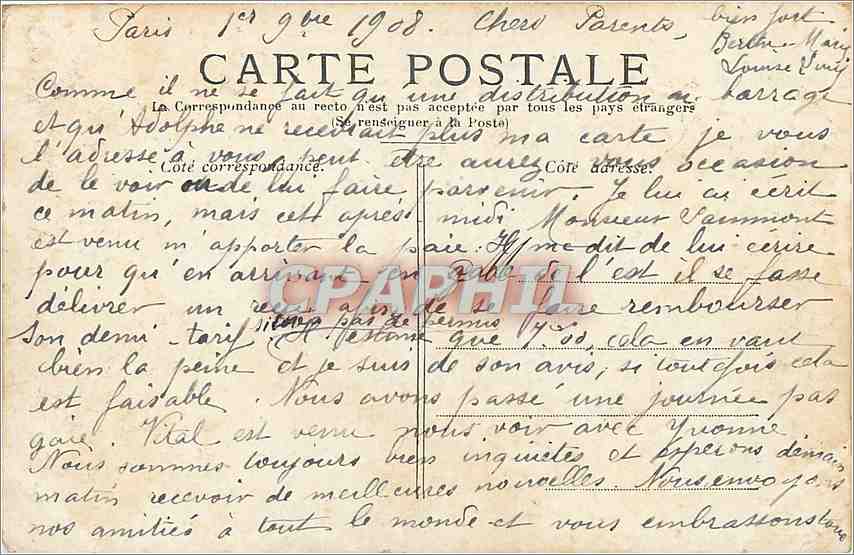 Paris 1er 9bre 1908. Chers Parents,
CARTE POSTALE
Comme il ne se fait qu'une distribution au barrage
La Correspondance au recto n'est pas acceptée par tous les pays étrangers
(Se renseigner à la Poste)
et qu'Adolphe ne recevrait plus ma carte je vous
l'adresse à vous, peut être aurez vous occasion
Côté correspondance.
Côté adresse.
de le voir ou de lui faire parvenir. Je lui ai écrit
ce matin, mais cet après midi Monsieur
est venu m'apporter la paie. Il me dit de lui écrire
pour qu'en arrivant en gare de l'est il se fasse
CPAPHIL
délivrer un reçu afin de se faire rembourser
si on a pas de permis
son demi-tarif. Il estime que 7.50, cela en vaut
bien la peine et je suis de son avis, si toutefois cela
est faisable. Nous avons passé une journée pas
gaie. Vital est venu nous voir avec Yvonne
Nous sommes toujours bien inquiètes et espérons demain
matin recevoir de meilleures nouvelles. Nous envoyons
nos amitiés à tout le monde et vous embrassons tous
bien fort
Berthe - Marie
Louise